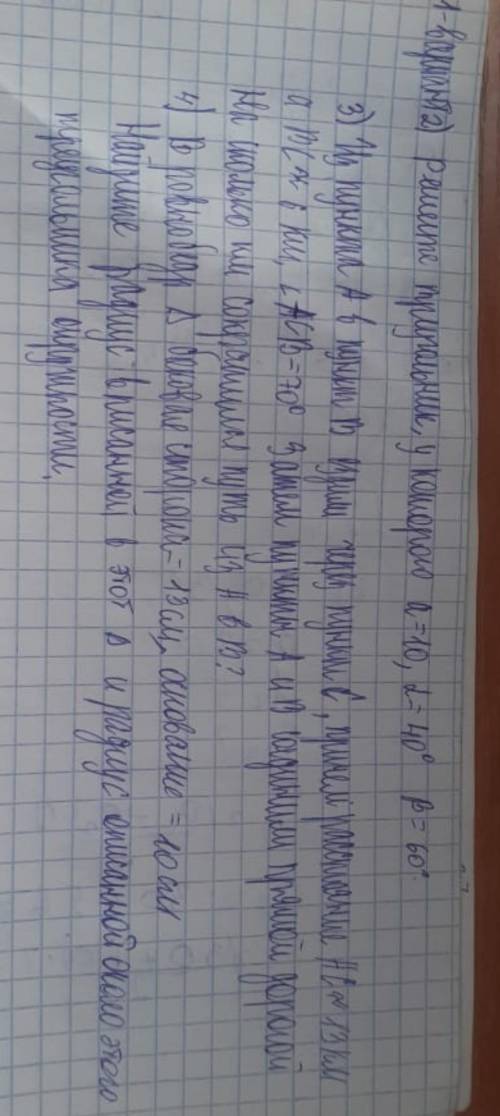 1-вариант 2) Решите треугольник, у которого a=10, α=40° β=60°.
3) Из пункта A в пункт B едут через пункт C, причем расстояние AC≈13 км
а BC≈8 км, ∠ACB=70° Затем пункты A и B соединили прямой дорогой
На сколько км сократился путь из A в B?
4) В равнобедр Δ боковые стороны = 13 см, основание = 10 см
Найдите радиус вписанной в этот Δ и радиус описанной около этого
треугольника окружности.